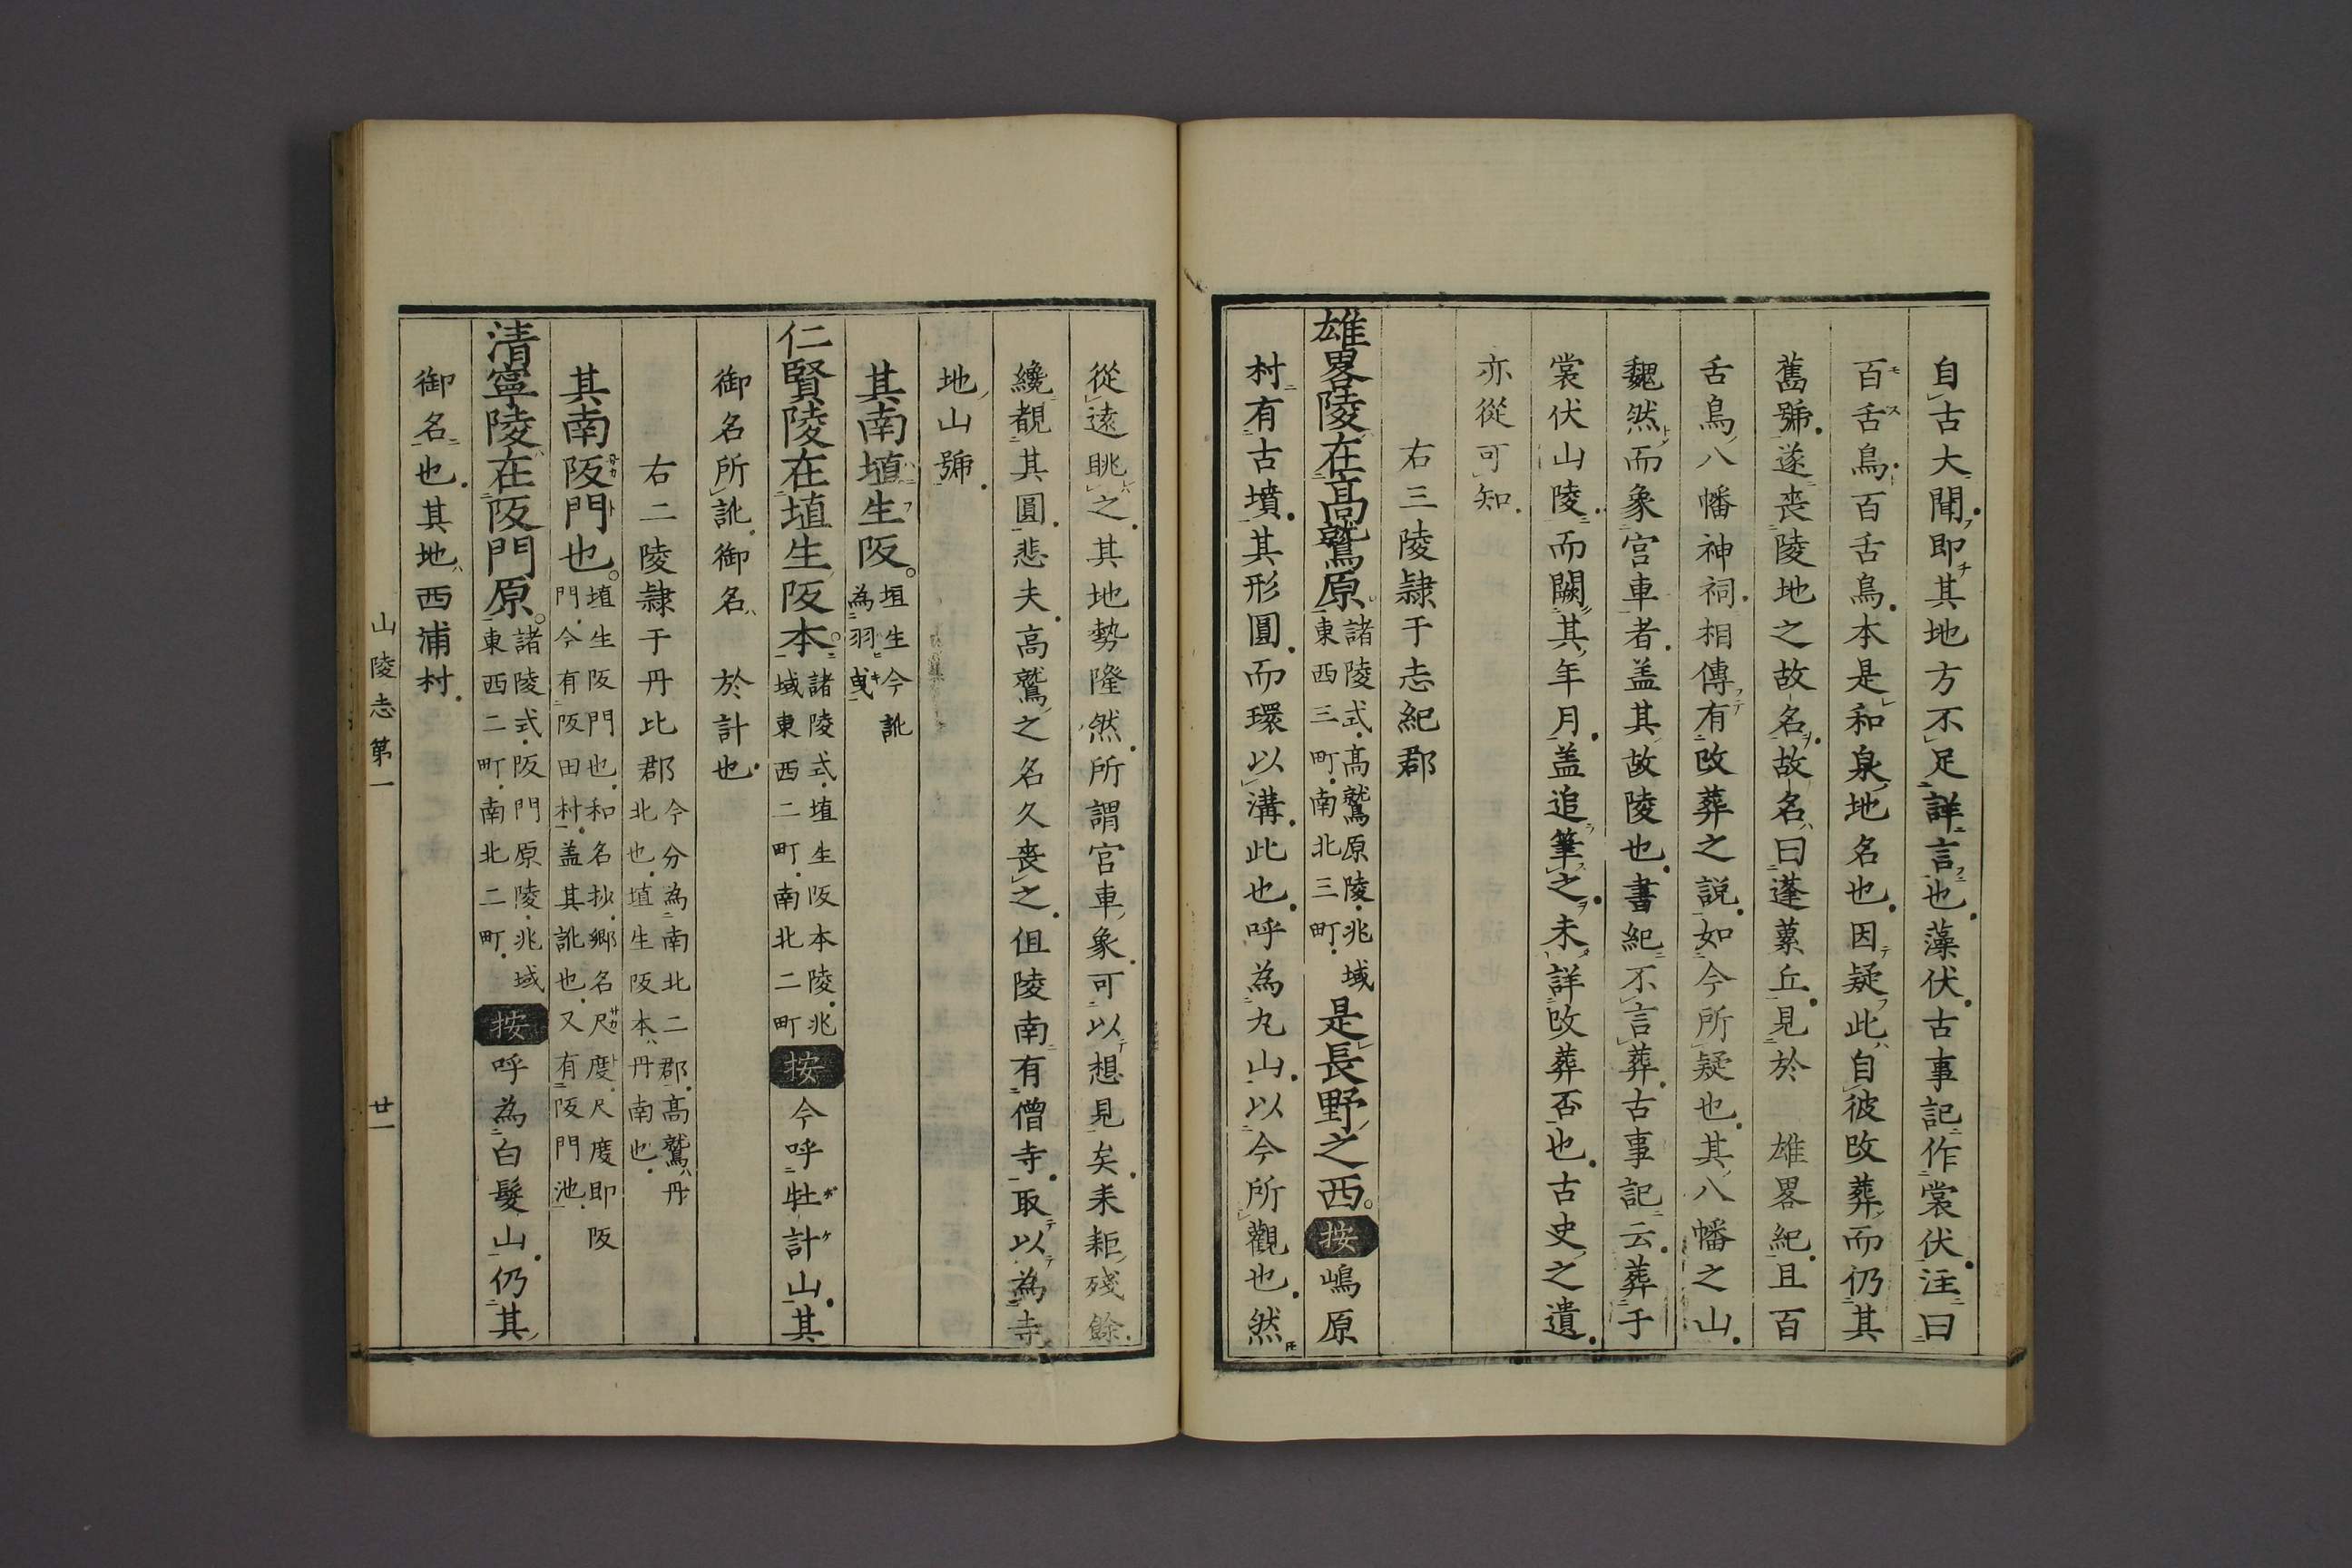 自古大聞即其地方不足詳言也藻伏古事記作裳伏注曰
百舌鳥百舌鳥本是和泉地名也因疑此自彼改葬而仍其
舊號遂喪陵地之故名故名曰蓬虆丘見於 雄畧紀且百
舌鳥八幡神祠相傳有改葬之說如今所疑也其八幡之山
魏然而象宮車者盖其故陵也書紀不言葬古事記云葬于
裳伏山陵而闕其年月盖追筆之未詳改葬否也古史之遺
亦從可知
右三陵隷于志紀郡
雄畧陵在高鷲原 諸陵式高鷲原陵兆域東西三町南北三町 是長野之西 按 嶋原
村有古墳其形圓而環以溝此也呼為丸山以今所觀也然
從遠眺之其地勢隆然所謂宮車象可以想見矣耒耟殘餘
纔覩其圓悲夫高鷲之名久喪之但陵南有僧寺取以為寺
地山號
其南埴生阪 埴生今訛為羽曳
仁賢陵在埴生阪本 諸陵式埴生阪本陵兆域東西二町南北二町 按 今呼牡計山其
御名所訛御名 於計也
右二陵隷于丹比郡 今分為南北二郡高鷲丹北也埴生阪本丹南也
其南阪門也 埴生阪門也和名抄郷名尺度尺度即阪門今有阪田村盖其訛也又有阪門池
清寧陵在阪門原 諸陵式阪門原陵兆域東西二町南北二町 按 呼為白髮山仍其
御名也其地西浦村
山陵志第一 廿一